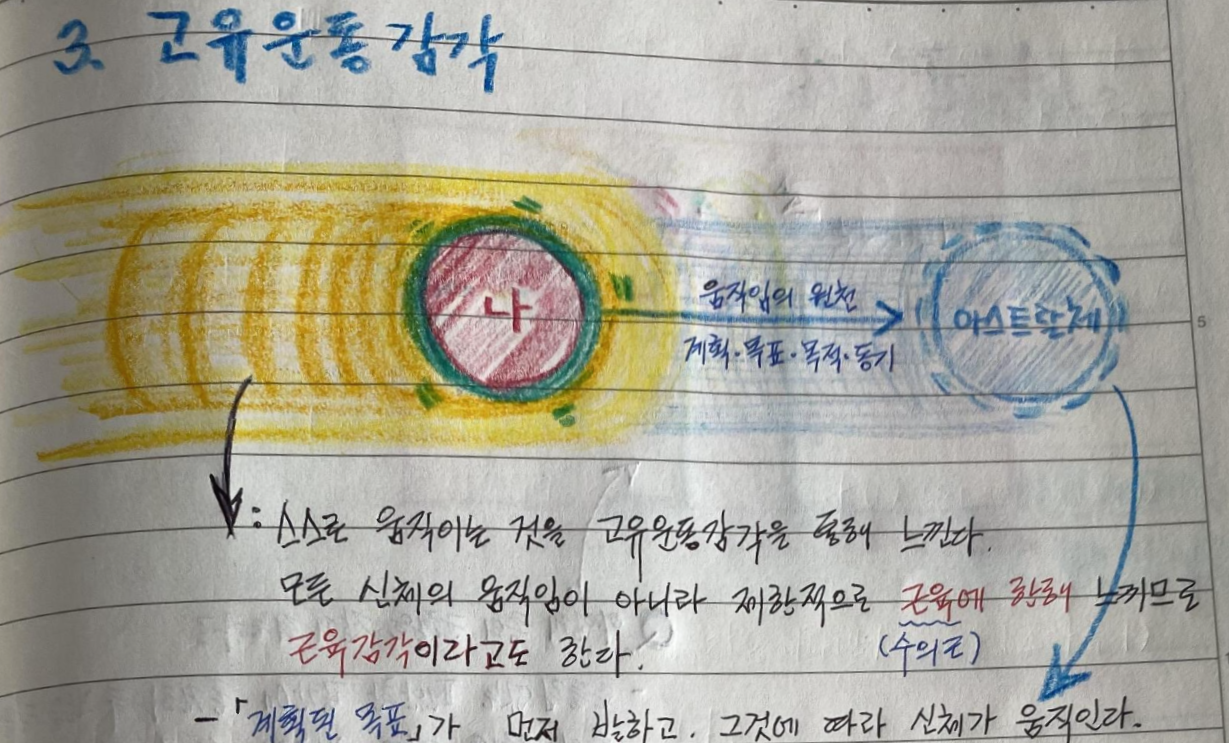 3. 고유운동감각
나
움직임의 원천
계획·목표·목적·동기
아스트랄체
: 스스로 움직이는 것을 고유운동감각을 통해 느낀다.
모든 신체의 움직임이 아니라 제한적으로 근육에 한해 느끼므로
(수의근)
근육감각이라고도 한다.
- 「계획된 목표」가 먼저 발하고, 그것에 따라 신체가 움직인다.
5